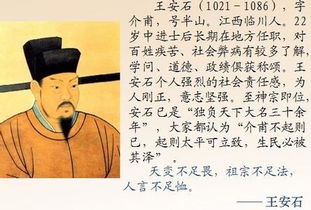 王安石(1021-1086)，字
介甫，号半山。江西临川人。22
岁中进士后长期在地方任职，对
百姓疾苦、社会弊病有较多了解，
学问、道德、政绩俱获称颂。王
安石个人强烈的社会责任感，为
人刚正，意志坚强。至神宗即位，
安石已是“独负天下大名三十余
年”，大家都认为“介甫不起则
已，起则太平可立致，生民必被
其泽”。
天变不足畏，祖宗不足法，
人言不足恤。
——王安石